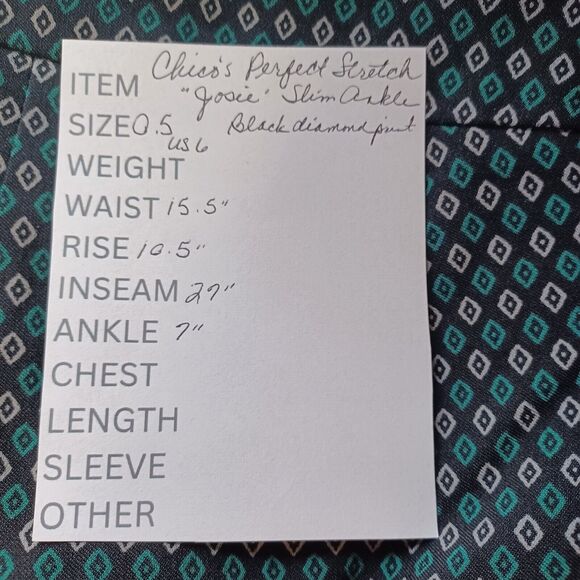 ITEM Chico's Perfect Stretch
"Josie" Slim Ankle
SIZE 0.5 Black diamond print
US 6
WEIGHT
WAIST 15.5"
RISE 10.5"
INSEAM 27"
ANKLE 7"
CHEST
LENGTH
SLEEVE
OTHER